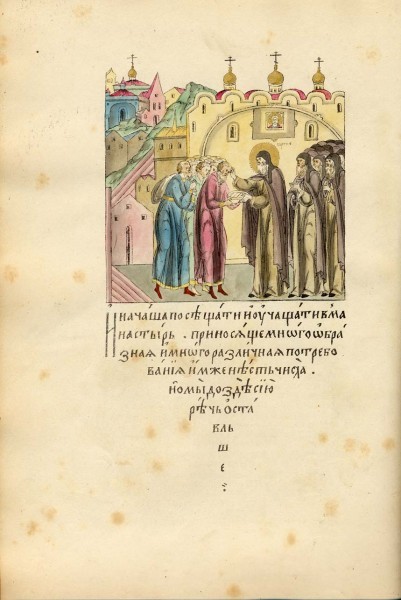 И начаша посѣщати и оучащати в ма
настырь . приносящем многоѡбра
зная и многоразличная потребо
ванїя имже нѣсть числа .
но мы до здѣ сїю
рѣчь ѡста
вль
ш
е